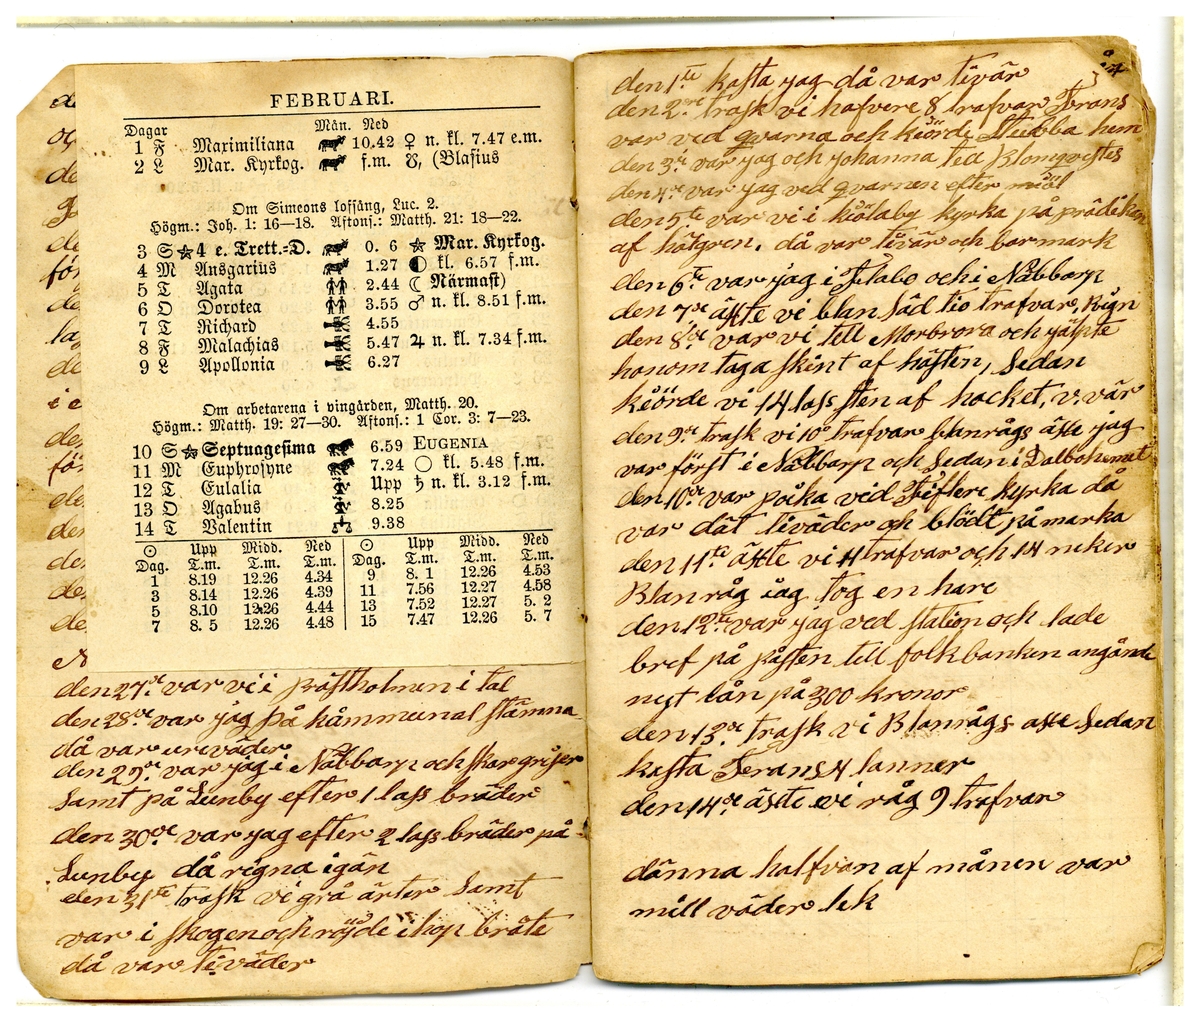 FEBRUARI.
Dagar Mån. Ned
1 F Maximiliana 10.42 ♀ n. kl. 7.47 e.m.
2 L Mar. Kyrkog. f.m. ☋, (Blasius
Om Simeons lofsång, Luc. 2.
Högm.: Joh. 1: 16—18. Aftons.: Matth. 21: 18—22.
3 S 4 e. Trett.=D. 0. 6 Mar. Kyrkog.
4 M Ansgarius 1.27 kl. 6.57 f.m.
5 T Agata 2.44 ☾ Närmast)
6 O Dorotea 3.55 ♂ n. kl. 8.51 f.m.
7 T Richard 4.55
8 F Malachias 5.47 ♃ n. kl. 7.34 f.m.
9 L Apollonia 6.27
Om arbetarena i vingården, Matth. 20.
Högm.: Matth. 19: 27—30. Aftons.: 1 Cor. 3: 7—23.
10 S Septuagesima 6.59 EUGENIA
11 M Euphrosyne 7.24 ○ kl. 5.48 f.m.
12 T Eulalia Upp ♄ n. kl. 3.12 f.m.
13 O Agabus 8.25
14 T Valentin 9.38
☉ Upp Midd. Ned ☉ Upp Midd. Ned
Dag. T.m. T.m. T.m. Dag. T.m. T.m. T.m.
1 8.19 12.26 4.34 9 8. 1 12.26 4.53
3 8.14 12.26 4.39 11 7.56 12.27 4.58
5 8.10 12.26 4.44 13 7.52 12.27 5. 2
7 8. 5 12.26 4.48 15 7.47 12.26 5. 7
den 27de var vi i på stholmen i tal
den 28de var jag på kåmmunal stämna
då var ureväder
den 29de var jag i Nåbbarp och skar grijer
Samt på Lunby efter 1 lass bräder
den 30de var jag efter 2 lass bräder på
Lunby då rigna igän
den 31te trask vi grå ärter Samt
var i skogen och röjde ihop bråte
då var töväder
den 1te kasta jag då var tövär
den 2dre trask vi hafvere 8 trafvar Frans
var ved qvarna och kiörde Stubba hem
den 3de var jag och johanna tell Blomqvistes
den 4de var jag ved qvarnen efter miöl
den 5te var vi i kiölaby kyrka på prädikan
af hötgren. då var tövär och barmark
den 6te var jag i och i Nåbbarp
den 7de äste vi blan Säd tio trafvar, Rign
den 8de var vi tell Morbrora och jälpte
honom taga skint af hästen, Sedan
kiörde vi 14 lass sten af hocket, v. vär
den 9de trask vi 10 trafvar blanrågs äste jag
var först i Nåbbarp och Sedan i Dalbohemat
den 10de var påka ved kyrka då
var dåt töväder och blödt på marka
den 11te äste vi 4 trafvar och 14 neker
Blanråg iag tog en hare
den 12te var jag ved station och lade
bref på påsten tell folkbanken angånde
nyt lån på 300 kronor
den 13de trask vi Blanrågs äste Sedan
kasta Frans 4 lanner
den 14de äste vi råg 9 trafvar
dänna halfvan af månen var
mill väder lek